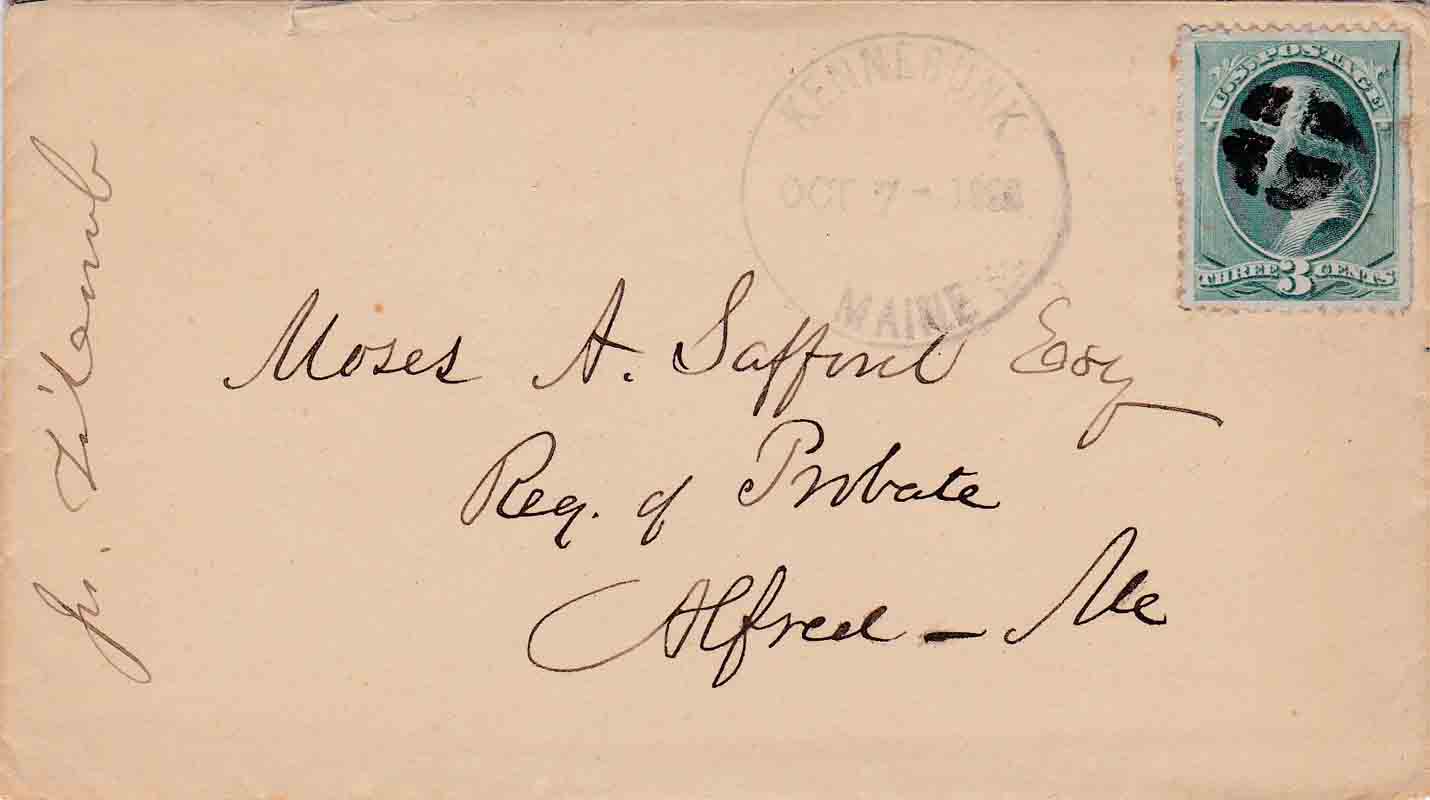 KENNEBUNK
OCT 7 - 188
MAINE
U.S. POSTAGE
THREE 3 CENTS
Moses A. Safford Esq
Reg. of Probate
Alfred - Me